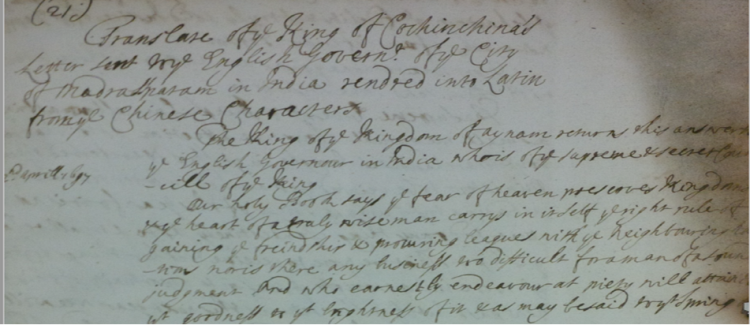 (21:)
Translate of ye King of Cochinchina's
Letter sent to ye English Govern:r of ye City
of Madraspatam in India rendred into Latin
from ye Chinese Characters
The King of ye Kingdom of aynam returns this answer
ye English Governour in India who is of ye supreme & secret
-cill of ye King
Our holy Book says ye fear of heaven preserves Kingdoms
ye heart of a truly wise man carrys in it self ye right rule of
gaining ye freindship & procuring leagues with ye Neighbouring
-doms nor is there any business too difficult for a man of a sound
judgment And who earnestly endeavour at piety will attain
yt goodness & yt brightness of it & as may be said